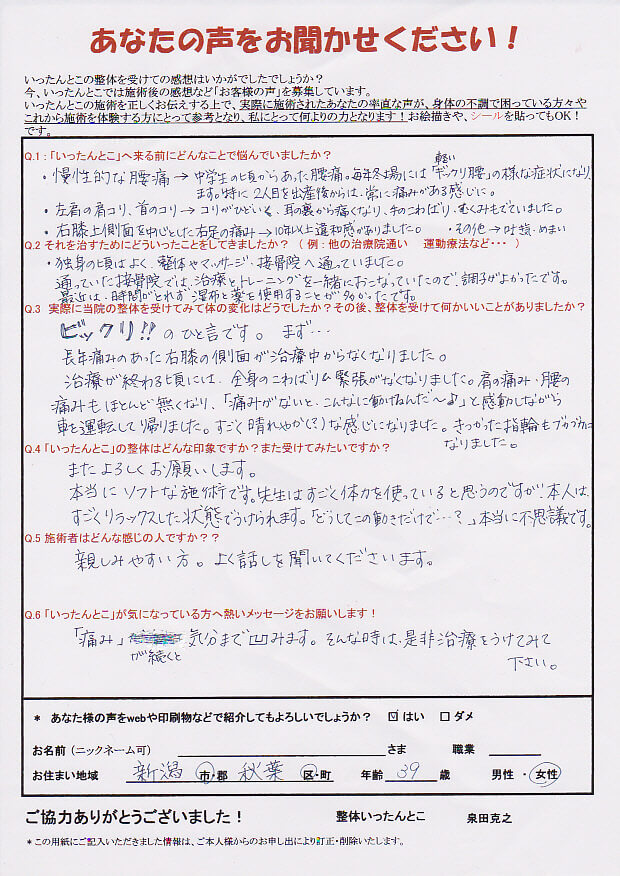 あなたの声をお聞かせください！
いったんとこの整体を受けての感想はいかがでしたでしょうか？
今、いったんとこでは施術後の感想など「お客様の声」を募集しています。
いったんとこの施術を正しくお伝えする上で、実際に施術されたあなたの率直な声が、身体の不調で困っている方々や
これから施術を体験する方にとって参考となり、私にとって何よりの力となります！お絵描きや、シールを貼ってもOK！
です。
Q.1：「いったんとこ」へ来る前にどんなことで悩んでいましたか？
・慢性的な腰痛 → 中学生の頃からあった腰痛。毎年冬場には軽い「ギックリ腰」の様な症状になり
ます。特に2人目を出産後からは、常に痛みがある感じに。
・左肩の肩コリ、首のコリ → コリがひどい为、耳の裏から痛くなり、手のこわばり・むくみもでていました。
・右膝上側面を中心とした右足の痛み → 10年以上違和感がありました。 ・その他 → 吐き気・めまい
Q.2 それを治すためにどういったことをしてきましたか？（ 例：他の治療院通い 運動療法など・・・ ）
・独身の頃はよく、整体やマッサージ・接骨院へ通っていました。
通っていた接骨院では、治療とトレーニングを一緒におこなっていたので、調子がよかったです。
最近は、時間がとれず湿布と薬を使用することが多かったです。
Q.3 実際に当院の整体を受けてみて体の変化はどうでしたか？その後、整体を受けて何かいいことがありましたか？
ビックリ!! のひと言です。まず…
長年痛みのあった右膝の側面が治療中からなくなりました。
治療が終わる頃には、全身のこわばりや緊張がなくなりました。肩の痛み・腰の
痛みもほとんど無くなり、「痛みがないと、こんなに動けるんだ〜♪」と感動しながら
車を運転して帰りました。すごく晴れやか(?)な感じになりました。きつかった指輪もブカブカに
なりました。
Q.4「いったんとこ」の整体はどんな印象ですか？また受けてみたいですか？
またよろしくお願いします。
本当にソフトな施術です。先生はすごく体力を使っていると思うのですが、本人は、
すごくリラックスした状態でうけられます。「どうしてこの動きだけで…？」本当に不思議です。
Q.5 施術者はどんな感じの人ですか？？
親しみやすい方。よく話しを聞いてくださいます。
Q.6「いったんとこ」が気になっている方へ熱いメッセージをお願いします！
「痛み」が続くと 気分まで凹みます。そんな時は、是非治療をうけてみて
下さい。
＊ あなた様の声をwebや印刷物などで紹介してもよろしいでしょうか？ ☑ はい □ ダメ
お名前（ニックネーム可） さま 職業
お住まい地域 新潟 市・郡 秋葉 区・町 年齢 39 歳 男性・女性
ご協力ありがとうございました！ 整体いったんとこ 泉田克之
＊この用紙にご記入いただきました情報は、ご本人様からのお申し出により訂正・削除いたします。